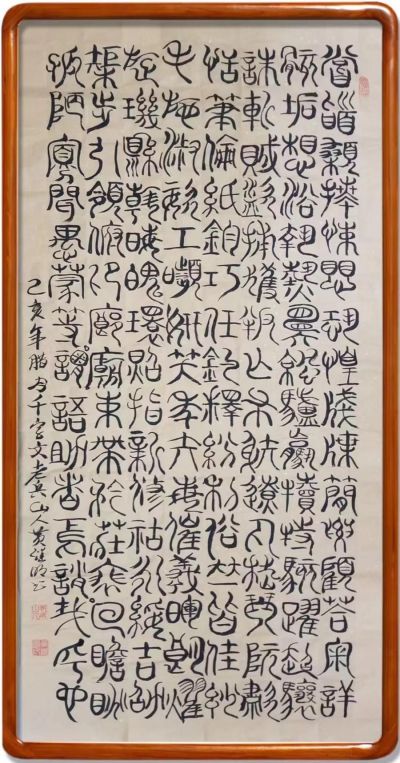 嘗稽顙拜悚懼恐惶牋牒簡要顧答審詳
骸垢想浴執熱願涼驢騾犢特駭躍超驤
誅斬賊盜捕獲叛亡布射遼丸嵇琴阮嘯
恬筆倫紙鈞巧任釣釋紛利俗並皆佳妙
毛施淑姿工顰妍笑年矢每催羲暉朗耀
璇璣懸斡晦魄環照指薪修祜永綏吉劭
矩步引領俯仰廊廟束帶矜莊徘徊瞻眺
孤陋寡聞愚蒙等誚謂語助者焉哉乎也
己亥年臘月千字文山人黃